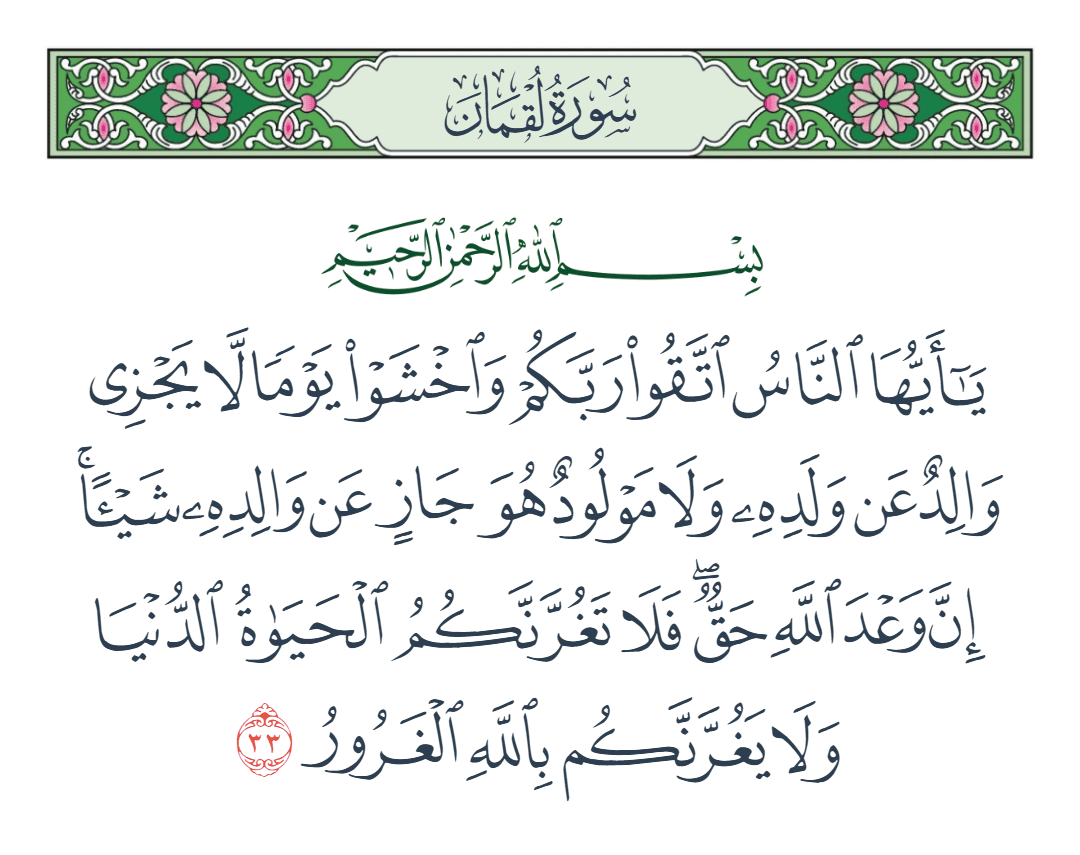 سُورَةُ لُقْمَان
بِسْمِ ٱللَّهِ ٱلرَّحْمَٰنِ ٱلرَّحِيمِ
يَـٰٓأَيُّهَا ٱلنَّاسُ ٱتَّقُوا۟ رَبَّكُمْ وَٱخْشَوْا۟ يَوْمًا لَّا يَجْزِى
وَالِدٌ عَن وَلَدِهِۦ وَلَا مَوْلُودٌ هُوَ جَازٍ عَن وَالِدِهِۦ شَيْـًٔا ۚ
إِنَّ وَعْدَ ٱللَّهِ حَقٌّ ۖ فَلَا تَغُرَّنَّكُمُ ٱلْحَيَوٰةُ ٱلدُّنْيَا
وَلَا يَغُرَّنَّكُم بِٱللَّهِ ٱلْغَرُورُ ٣٣